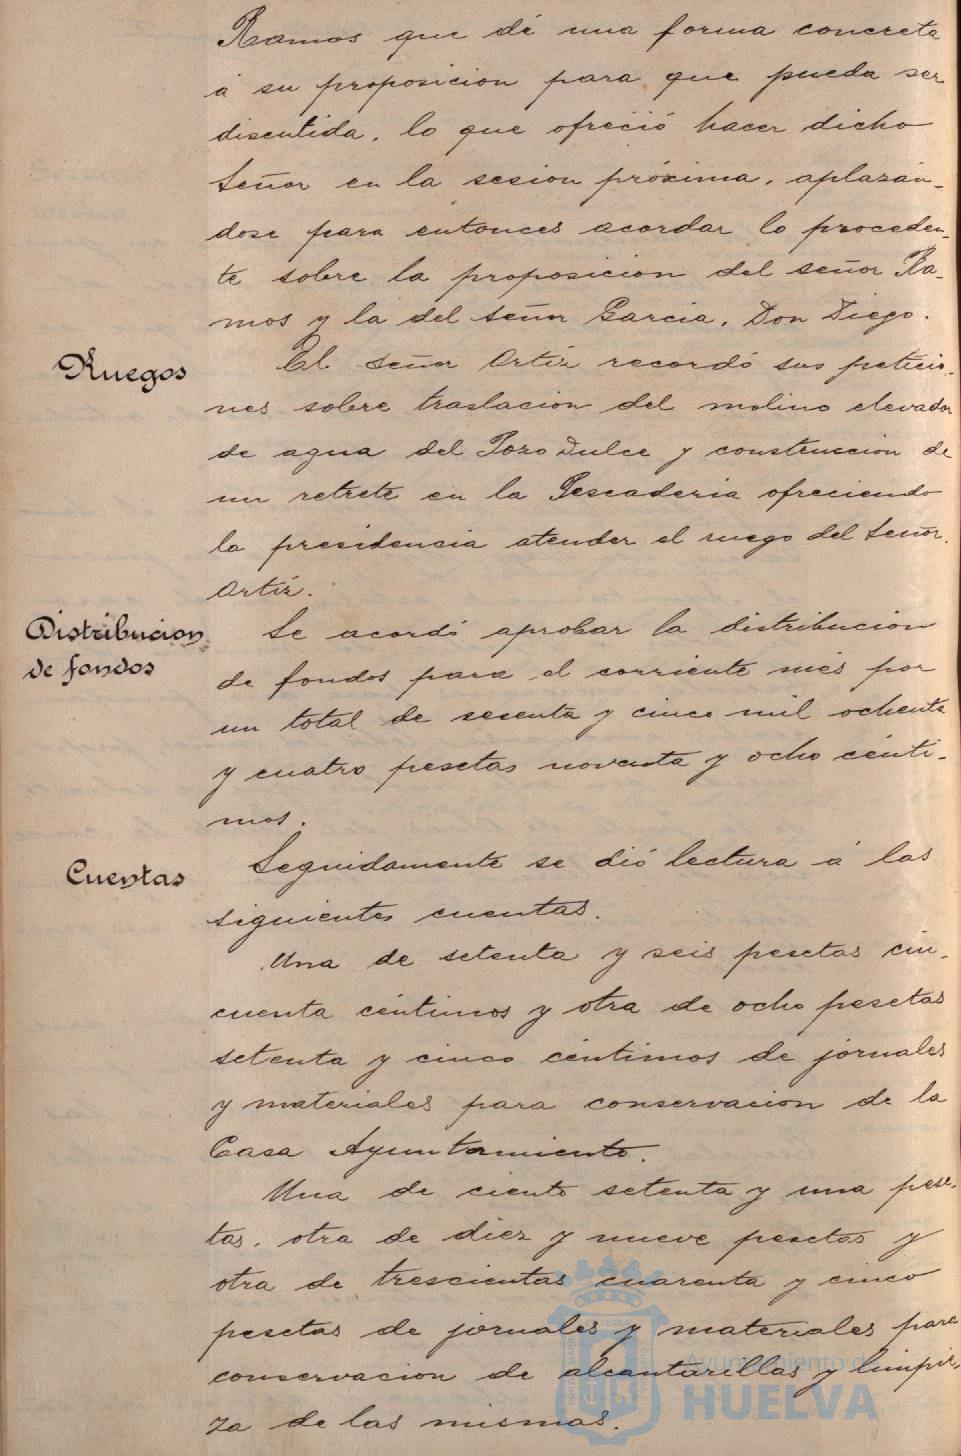 Ramos que dé una forma concreta
á su proposicion para que pueda ser
discutida, lo que ofreció hacer dicho
Señor en la sesion próxima, aplazán-
dose para entonces acordar lo proceden-
te sobre la proposicion del señor Ra-
mos y la del Señor Garcia, Don Diego.
Ruegos
El Señor Ortiz recordó sus peticio-
nes sobre traslacion del molino elevador
de agua del Pozo Dulce y construccion de
un retrete en la Pescaderia ofreciendo
la presidencia atender el ruego del Señor
Ortiz.
Distribucion
de fondos
Se acordó aprobar la distribucion
de fondos para el corriente més por
un total de sesenta y cinco mil ochenta
y cuatro pesetas noventa y ocho cénti-
mos.
Cuentas
Seguidamente se dió lectura á las
siguientes cuentas.
Una de setenta y seis pesetas cin-
cuenta céntimos y otra de ocho pesetas
setenta y cinco céntimos de jornales
y materiales para conservacion de la
Casa Ayuntamiento.
Una de ciento setenta y una pese-
tas, otra de diez y nueve pesetas y
otra de trescientas cuarenta y cinco
pesetas de jornales y materiales para
conservacion de alcantarillas y limpie-
za de las mismas.
Ayuntamiento de
HUELVA